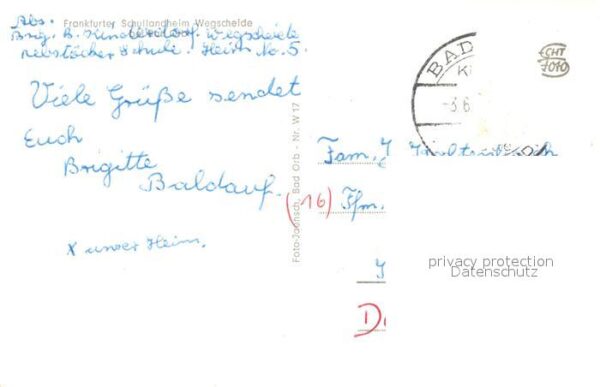 Frankfurter Schullandheim Wegscheide
Abs.
Brig. B. Kinderdorf. Wegscheide
Schule. Heim No. 5.
Viele Grüße sendet
Euch
Brigitte
Baldauf.
x unser Heim.
Foto-Jahnsch, Bad Orb - Nr. W 17
BAD
3.6
CHT
7010
Fam.
(16) Ffm.
privacy protection
Datenschutz